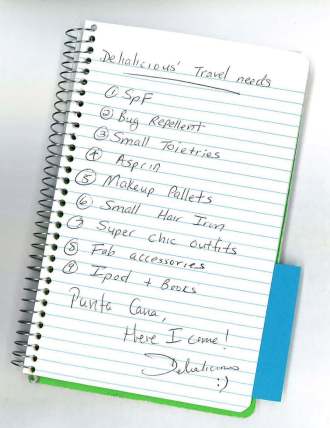 Delialicious' Travel needs
① SpF
② Bug Repellent
③ Small Toietries
④ Asprin
⑤ Makeup Pallets
⑥ Small Hair Iron
⑦ Super chic outfits
⑧ Fab accessories
⑨ Ipod + Books
Punta Cana,
Here I come!
Delialicious
:)